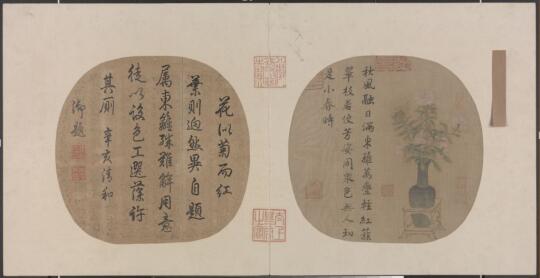 秋風融日滿東籬萬疊輕紅簇
翠枝若使芳姿同衆色無人知
是小春時
花似菊而紅
葉則迥般異自題
屬東籬殊難解用意
徒以設色工選葉許
其廁 辛亥清和
御題